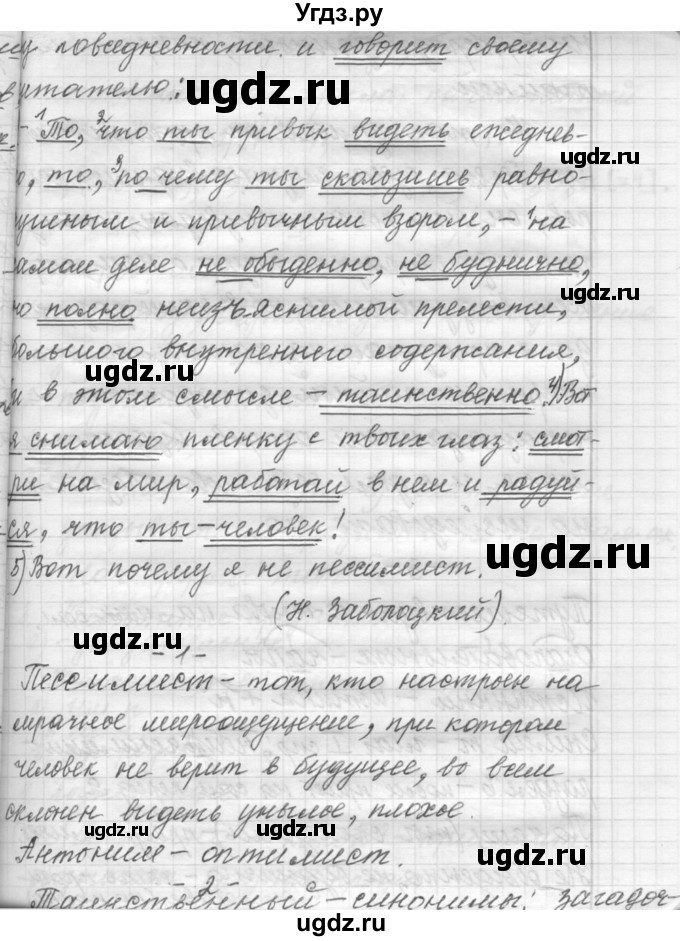 Угдз.ру
му повседневности и говорит своему
читателю:
- 1То, 2что ты привык видеть ежеднев-
о, то, 3по чему ты скользишь равно-
ушным и привычным взором, - 1на
амом деле не обыденно, не буднично,
но полно неизъяснимой прелести,
большого внутреннего содержания,
и в этом смысле - таинственно. 4) Вот
я снимаю пленку с твоих глаз: смот-
ри на мир, работай в нем и радуй-
ся, что ты - человек!
5) Вот почему я не пессимист.
(Н. Заболоцкий).
- 1 -
Пессимист - тот, кто настроен на
мрачное мироощущение, при котором
человек не верит в будущее, во всем
склонен видеть унылое, плохое.
Антоним - оптимист.
- 2 -
Таинственный - синонимы: загадоч-
ugdz.ru
ugdz.ru
ugdz.ru
ugdz.ru
ugdz.ru
ugdz.ru
ugdz.ru
ugdz.ru
ugdz.ru
ugdz.ru
ugdz.ru
ugdz.ru
ugdz.ru
ugdz.ru